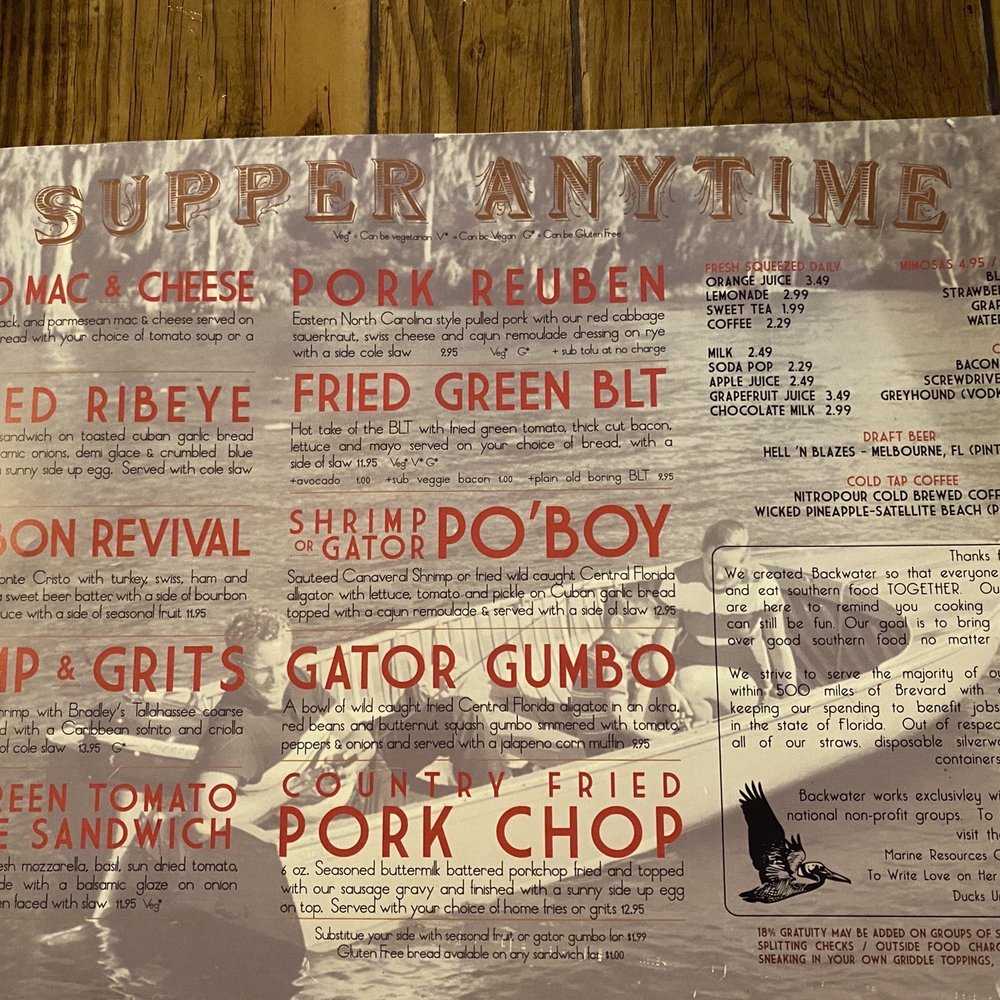 SUPPER ANYTIME
Veg* = Can be vegetarian V* = Can be Vegan G* = Can be Gluten Free
MAC & CHEESE
and parmesean mac & cheese served on
with your choice of tomato soup or a
RIBEYE
sandwich on toasted cuban garlic bread
onions, demi glace & crumbled blue
sunny side up egg. Served with cole slaw
REVIVAL
Cristo with turkey, swiss, ham and
sweet beer batter, with a side of bourbon
with a side of seasonal fruit 11.95
& GRITS
with Bradley's Tallahassee coarse
with a Caribbean sofrito and criolla
of cole slaw 13.95 G*
TOMATO
SANDWICH
mozzarella, basil, sun dried tomato,
with a balsamic glaze on onion
faced with slaw 11.95 Veg*
PORK REUBEN
Eastern North Carolina style pulled pork with our red cabbage
sauerkraut, swiss cheese and cajun remoulade dressing on rye
with a side cole slaw 9.95 Veg* G* + sub tofu at no charge
FRIED GREEN BLT
Hot take of the BLT with fried green tomato, thick cut bacon,
lettuce and mayo served on your choice of bread, with a
side of slaw 11.95 Veg* V* G*
+avocado 1.00 +sub veggie bacon 1.00 +plain old boring BLT 9.95
SHRIMP
OR GATOR
PO'BOY
Sauteed Canaveral Shrimp or fried wild caught Central Florida
alligator with lettuce, tomato and pickle on Cuban garlic bread
topped with a cajun remoulade & served with a side of slaw 12.95
GATOR GUMBO
A bowl of wild caught fried Central Florida alligator in an okra,
red beans and butternut squash gumbo simmered with tomato,
peppers & onions and served with a jalapeno corn muffin 9.95
COUNTRY FRIED
PORK CHOP
6 oz. Seasoned buttermilk battered porkchop fried and topped
with our sausage gravy and finished with a sunny side up egg
on top. Served with your choice of home fries or grits 12.95
Substitue your side with seasonal fruit or gator gumbo for $1.99
Gluten Free bread available on any sandwich for $1.00
FRESH SQUEEZED DAILY
ORANGE JUICE 3.49
LEMONADE 2.99
SWEET TEA 1.99
COFFEE 2.29
MILK 2.49
SODA POP 2.29
APPLE JUICE 2.49
GRAPEFRUIT JUICE 3.49
CHOCOLATE MILK 2.99
MIMOSAS 4.95 /
BACON
GREYHOUND
DRAFT BEER
HELL 'N BLAZES - MELBOURNE, FL
COLD TAP COFFEE
NITROPOUR COLD BREWED
WICKED PINEAPPLE-SATELLITE BEACH
Thanks
We created Backwater so that everyone
and eat southern food TOGETHER.
are here to remind you cooking
can still be fun. Our goal is to bring
over good southern food, no matter
We strive to serve the majority of
within 500 miles of Brevard with
keeping our spending to benefit jobs
in the state of Florida. Out of
all of our straws, disposable
containers
Backwater works exclusivley
national non-profit groups. To
visit
Marine Resources
To Write Love on Her
Ducks
18% GRATUITY MAY BE ADDED ON GROUPS OF
SPLITTING CHECKS / OUTSIDE FOOD
SNEAKING IN YOUR OWN GRIDDLE TOPPINGS,